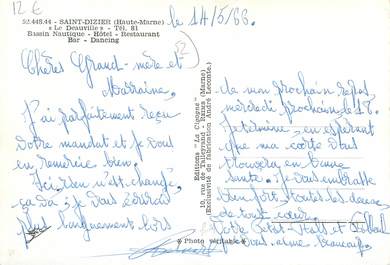 12 €
52.448.44 - SAINT-DIZIER (Haute-Marne)
« Le Deauville » - Tél. 81
Bassin Nautique - Hôtel - Restaurant
Bar - Dancing
le 14/5/66.
Chères Grand-mère et
Marraine,
J'ai parfaitement reçu
votre mandat et je vous
en remercie bien.
Ici rien n'est changé,
ça va ; je vous écrirai
plus longuement lors
de mon prochain repos
mercredi prochain le 18.
Je termine, en espérant
que ma carte vous
trouvera en bonne
santé. Je vous embrasse
bien fort toutes les deux
de tout cœur.
Votre Petit-Fils et
vous aime beaucoup.
Editions "La Cigogne"
10, rue de Talleyrand - REIMS (Marne)
(Exclusivité de fabrication André Leconte)
* Photo véritable *